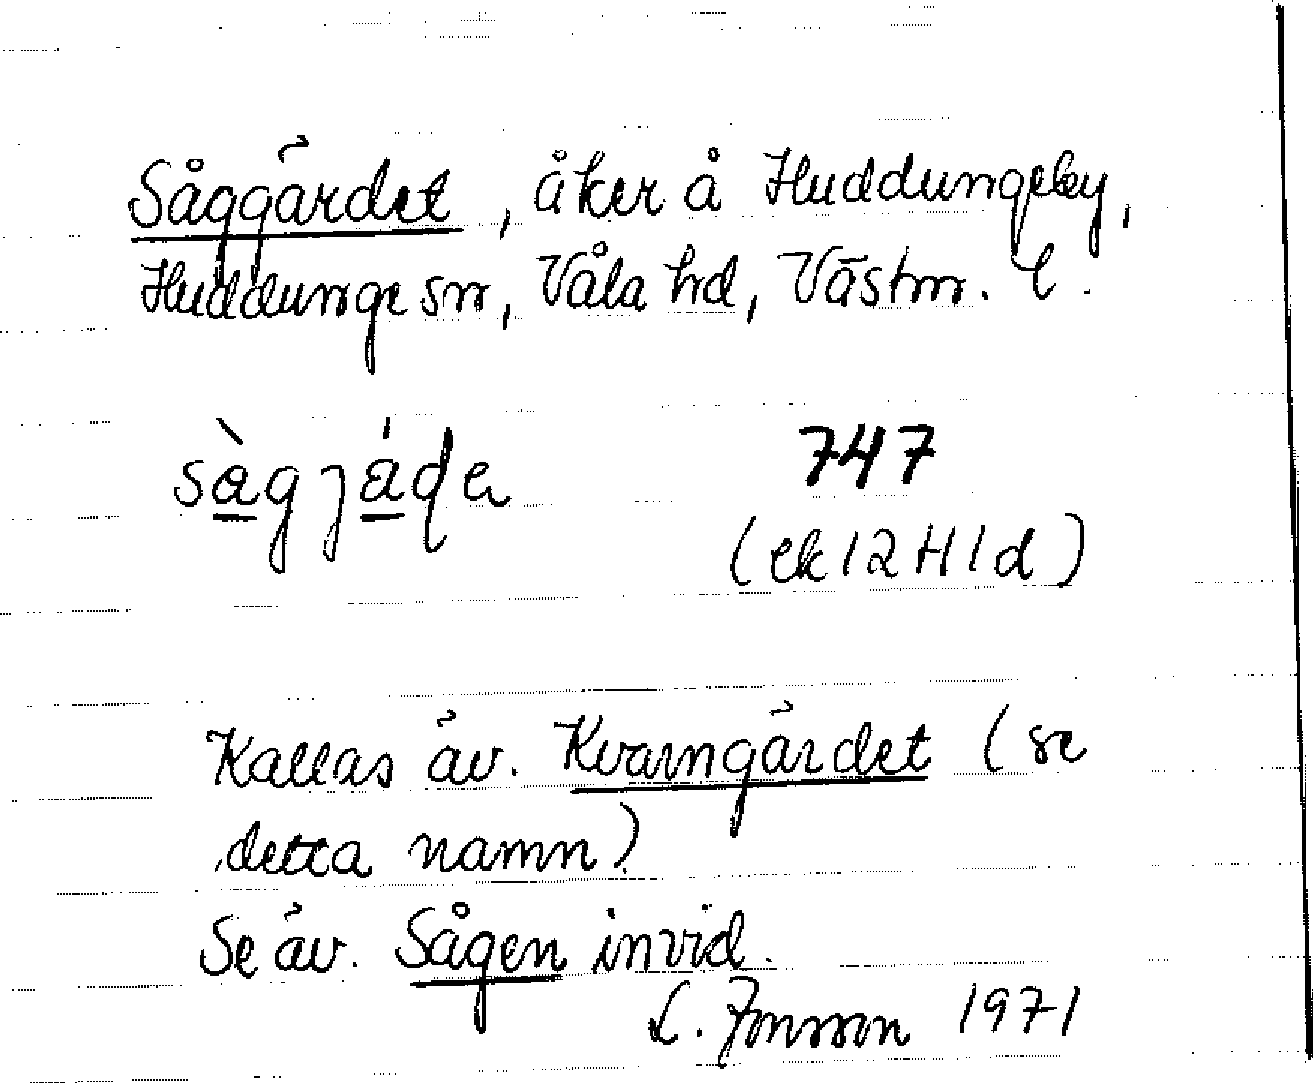 Såggärdet, åker å Huddungeby,
Huddunge sn, Våla hd, Västm. l.
747
(ek 12 H 1 d)
Kallas äv. Kvarngärdet (se
detta namn).
Se äv. Sågen invid.
L. Jonsson 1971